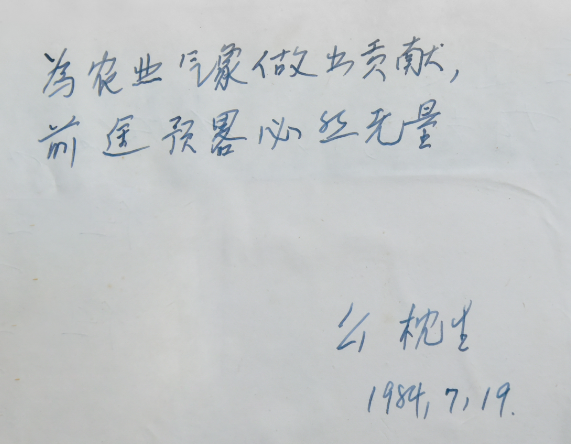 為农业气象做出贡献,
前途预畧必然无量
么枕生
1984,7,19.